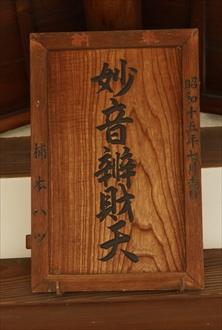 奉納
昭和十五年七月吉日
妙音辨財天
橋本ハツ